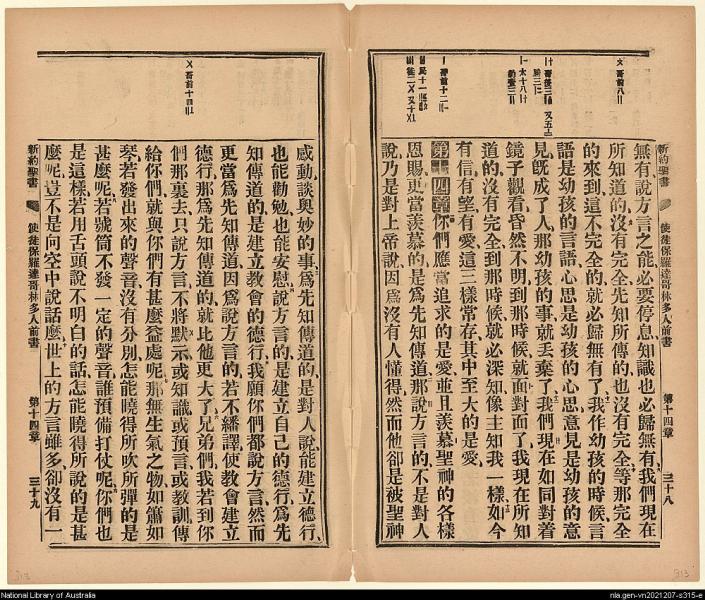 無有說方言之能必要停息知識也必歸無有我們現在
所知道的沒有完全先知所傳的也沒有完全等那完全
的來到這不完全的就必歸無有了我作幼孩的時候言
語是幼孩的言語心思是幼孩的心思意見是幼孩的意
見既成了人那幼孩的事就丟棄了我們現在如同對着
鏡子觀看昏然不明到那時候就面對面了我現在所知
道的沒有完全到那時候就必深知像主知我一樣如今
有信有望有愛這三樣常存其中至大的是愛
第十四章你們應當追求的是愛並且羨慕聖神的各樣
恩賜更當羨慕的是爲先知傳道那說方言的不是對人
說乃是對上帝說因爲沒有人懂得然而他卻是被聖神
新約聖書
使徒保羅達哥林多人前書
第十四章
三十八
感動談奧妙的事爲先知傳道的是對人說能建立德行
也能勸勉也能安慰說方言的是建立自己的德行爲先
知傳道的是建立教會的德行我願你們都說方言然而
更當爲先知傳道因爲說方言的若不繙譯使教會建立
德行那爲先知傳道的就比他更大了兄弟們我若到你
們那裏去只說方言不將默示或知識或預言或教訓傳
給你們就與你們有甚麼益處呢那無生氣之物如簫如
琴若發出來的聲音沒有分別怎能曉得所吹所彈的是
甚麼呢若號筒不發一定的聲音誰預備打仗呢你們也
是這樣若用舌頭說不明白的話怎能曉得所說的是甚
麼呢豈不是向空中說話麼世上的方言雖多卻沒有一
新約聖書
使徒保羅達哥林多人前書
第十四章
三十九
National Library of Australia
nla.gen-vn2021207-s315-e